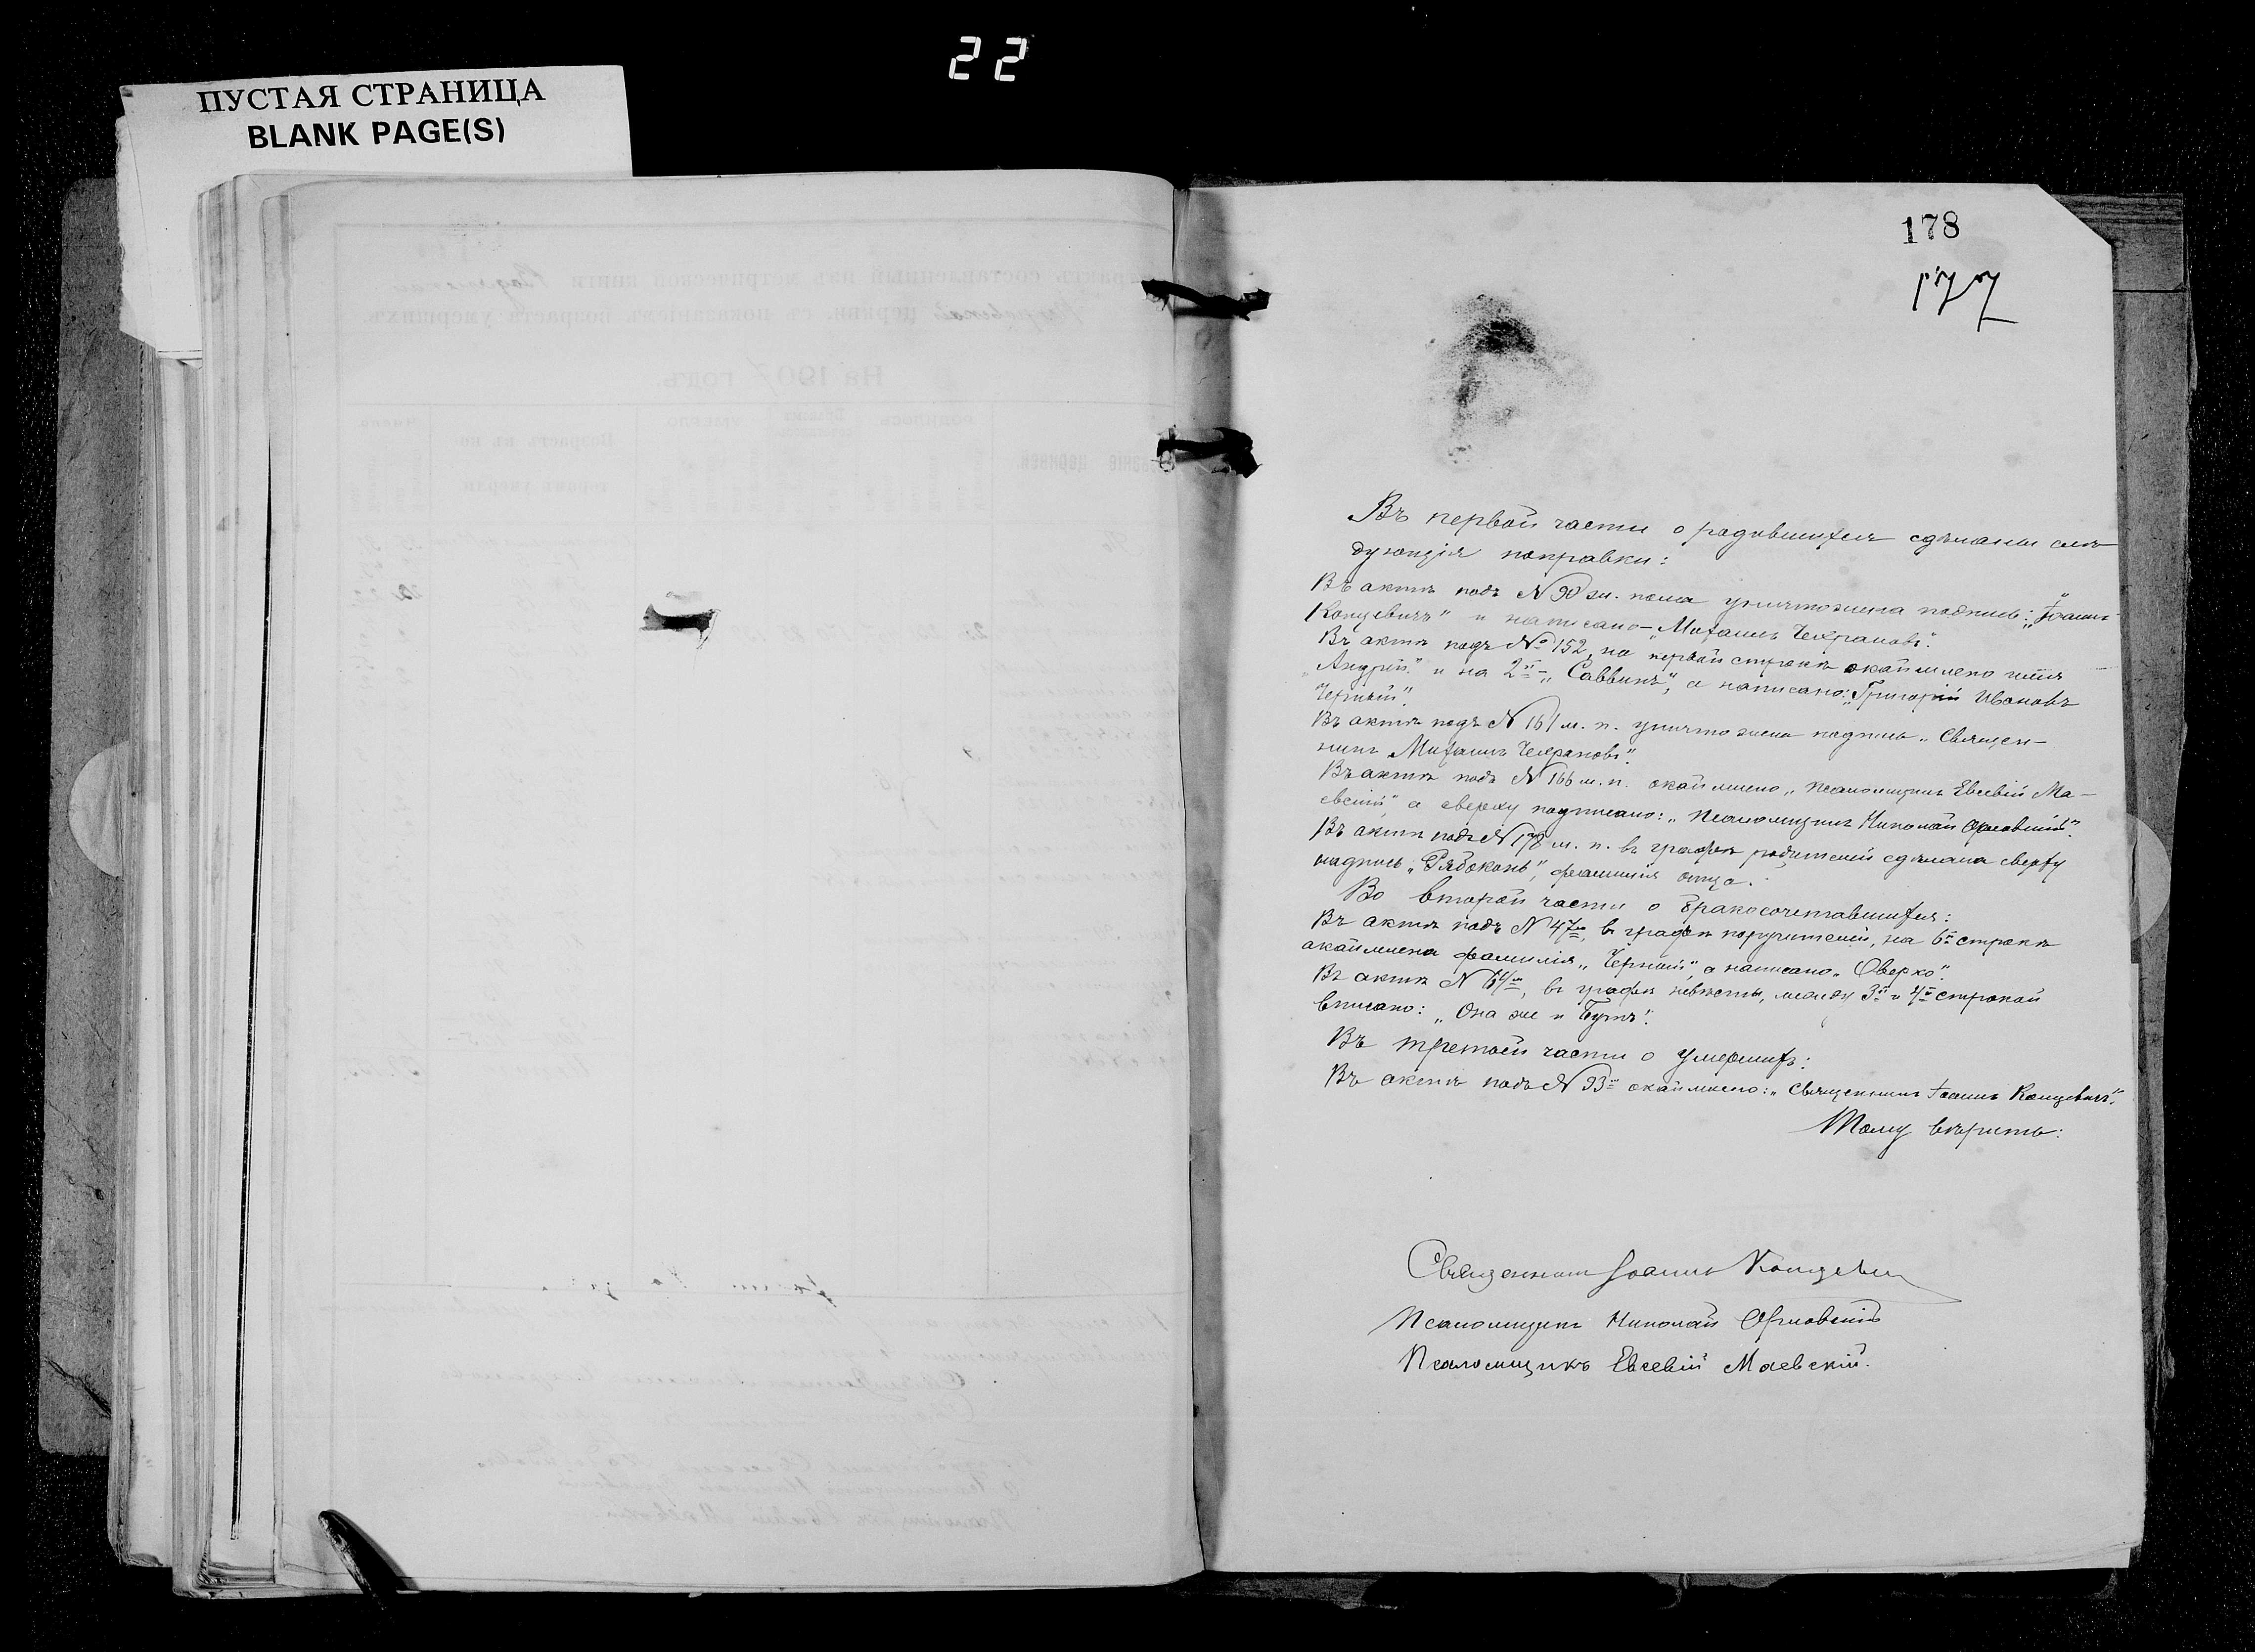 22
ПУСТАЯ СТРАНИЦА
BLANK PAGE(S)
178
177
Въ первой части о родившихся сдѣланы слѣ-
дующія поправки:
Въ актѣ подъ N 90 м. пола уничтожена подпись: „Іоаннъ
Концевичъ" и написано – „Михаилъ Чехрановъ".
Въ актѣ подъ № 152, на первой строкѣ окаймлено имя
„Андрій" и на 2й – „Саввинъ", а написано: „Григорій Ивановъ
Черный".
Въ актѣ подъ N 161 м. п. уничтожена подпись „Священ-
никъ Михаилъ Чехрановъ".
Въ актѣ подъ N 166 м. п. окаймлено „Псаломщикъ Евсевій Ма-
евскій" а сверху подписано: „Псаломщикъ Николай Орловскій".
Въ актѣ подъ N 178 м. п. въ графѣ родителей сдѣлана сверху
надпись „Рябоконь", фамилія отца.
Во второй части о бракосочетавшихся:
Въ актѣ подъ N 47м, въ графѣ поручителей, на 6й строкѣ
окаймлена фамилія „Черный", а написано „Оверко".
Въ актѣ N 64м, въ графѣ невѣсты, между 3й и 4й строкой
вписано: „Она же и Бутъ".
Въ третьей части о умершихъ:
Въ актѣ подъ N 93м окаймлено: „Священникъ Іоаннъ Концевичъ".
Тому вѣрить:
Священникъ Іоаннъ Концевич
Псаломщикъ Николай Орловскій
Псаломщикъ Евсевій Маевскій.